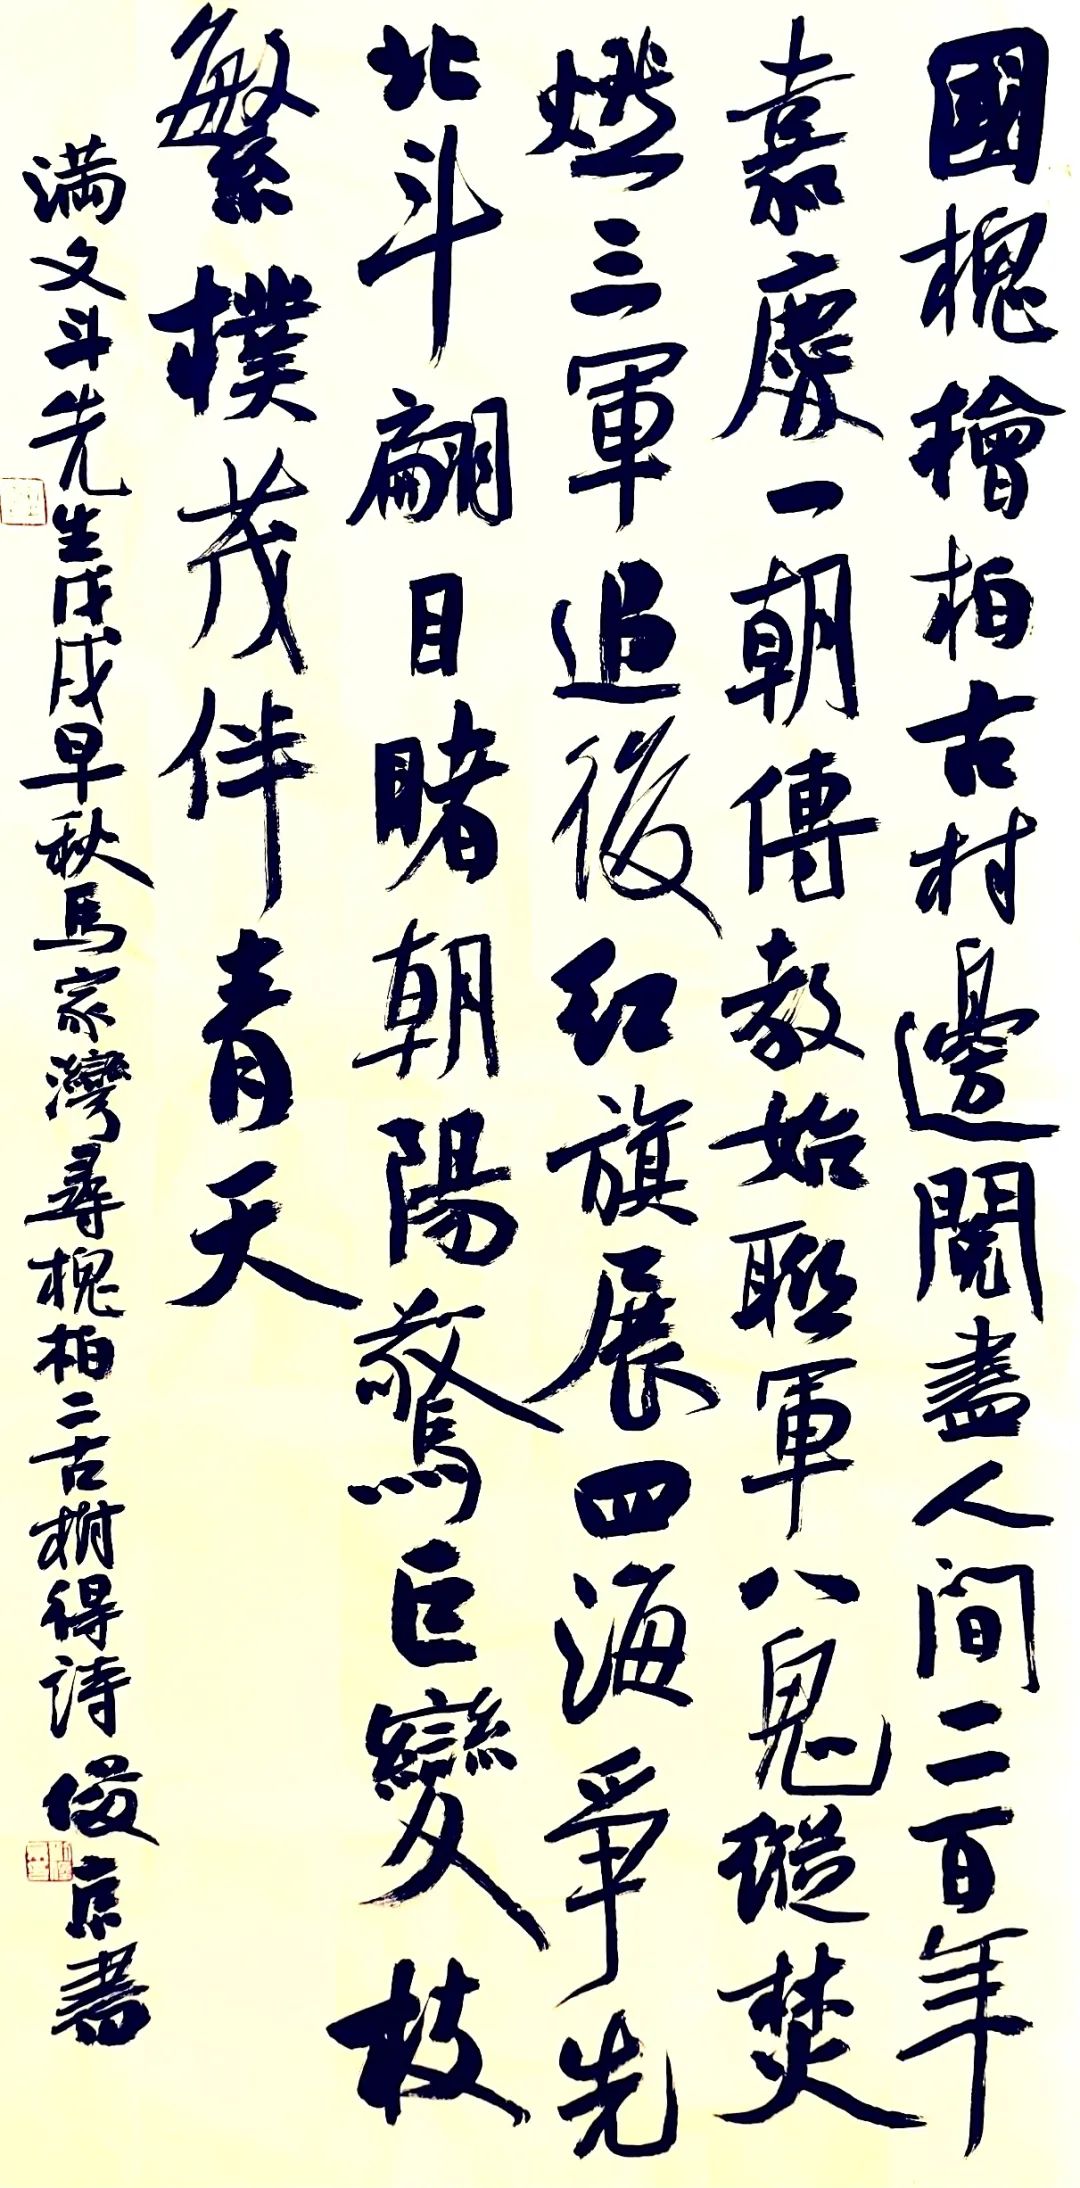 國槐檜柏古村邊閱盡人間二百年
嘉慶一朝傳教始聯軍八鬼縱焚
燃三軍追後紅旗展四海爭先
北斗翩目睹朝陽驚巨變枝
繁樸茂伴青天
满文斗先生戊戌早秋馬家灣尋槐柏二古樹得詩俊京書